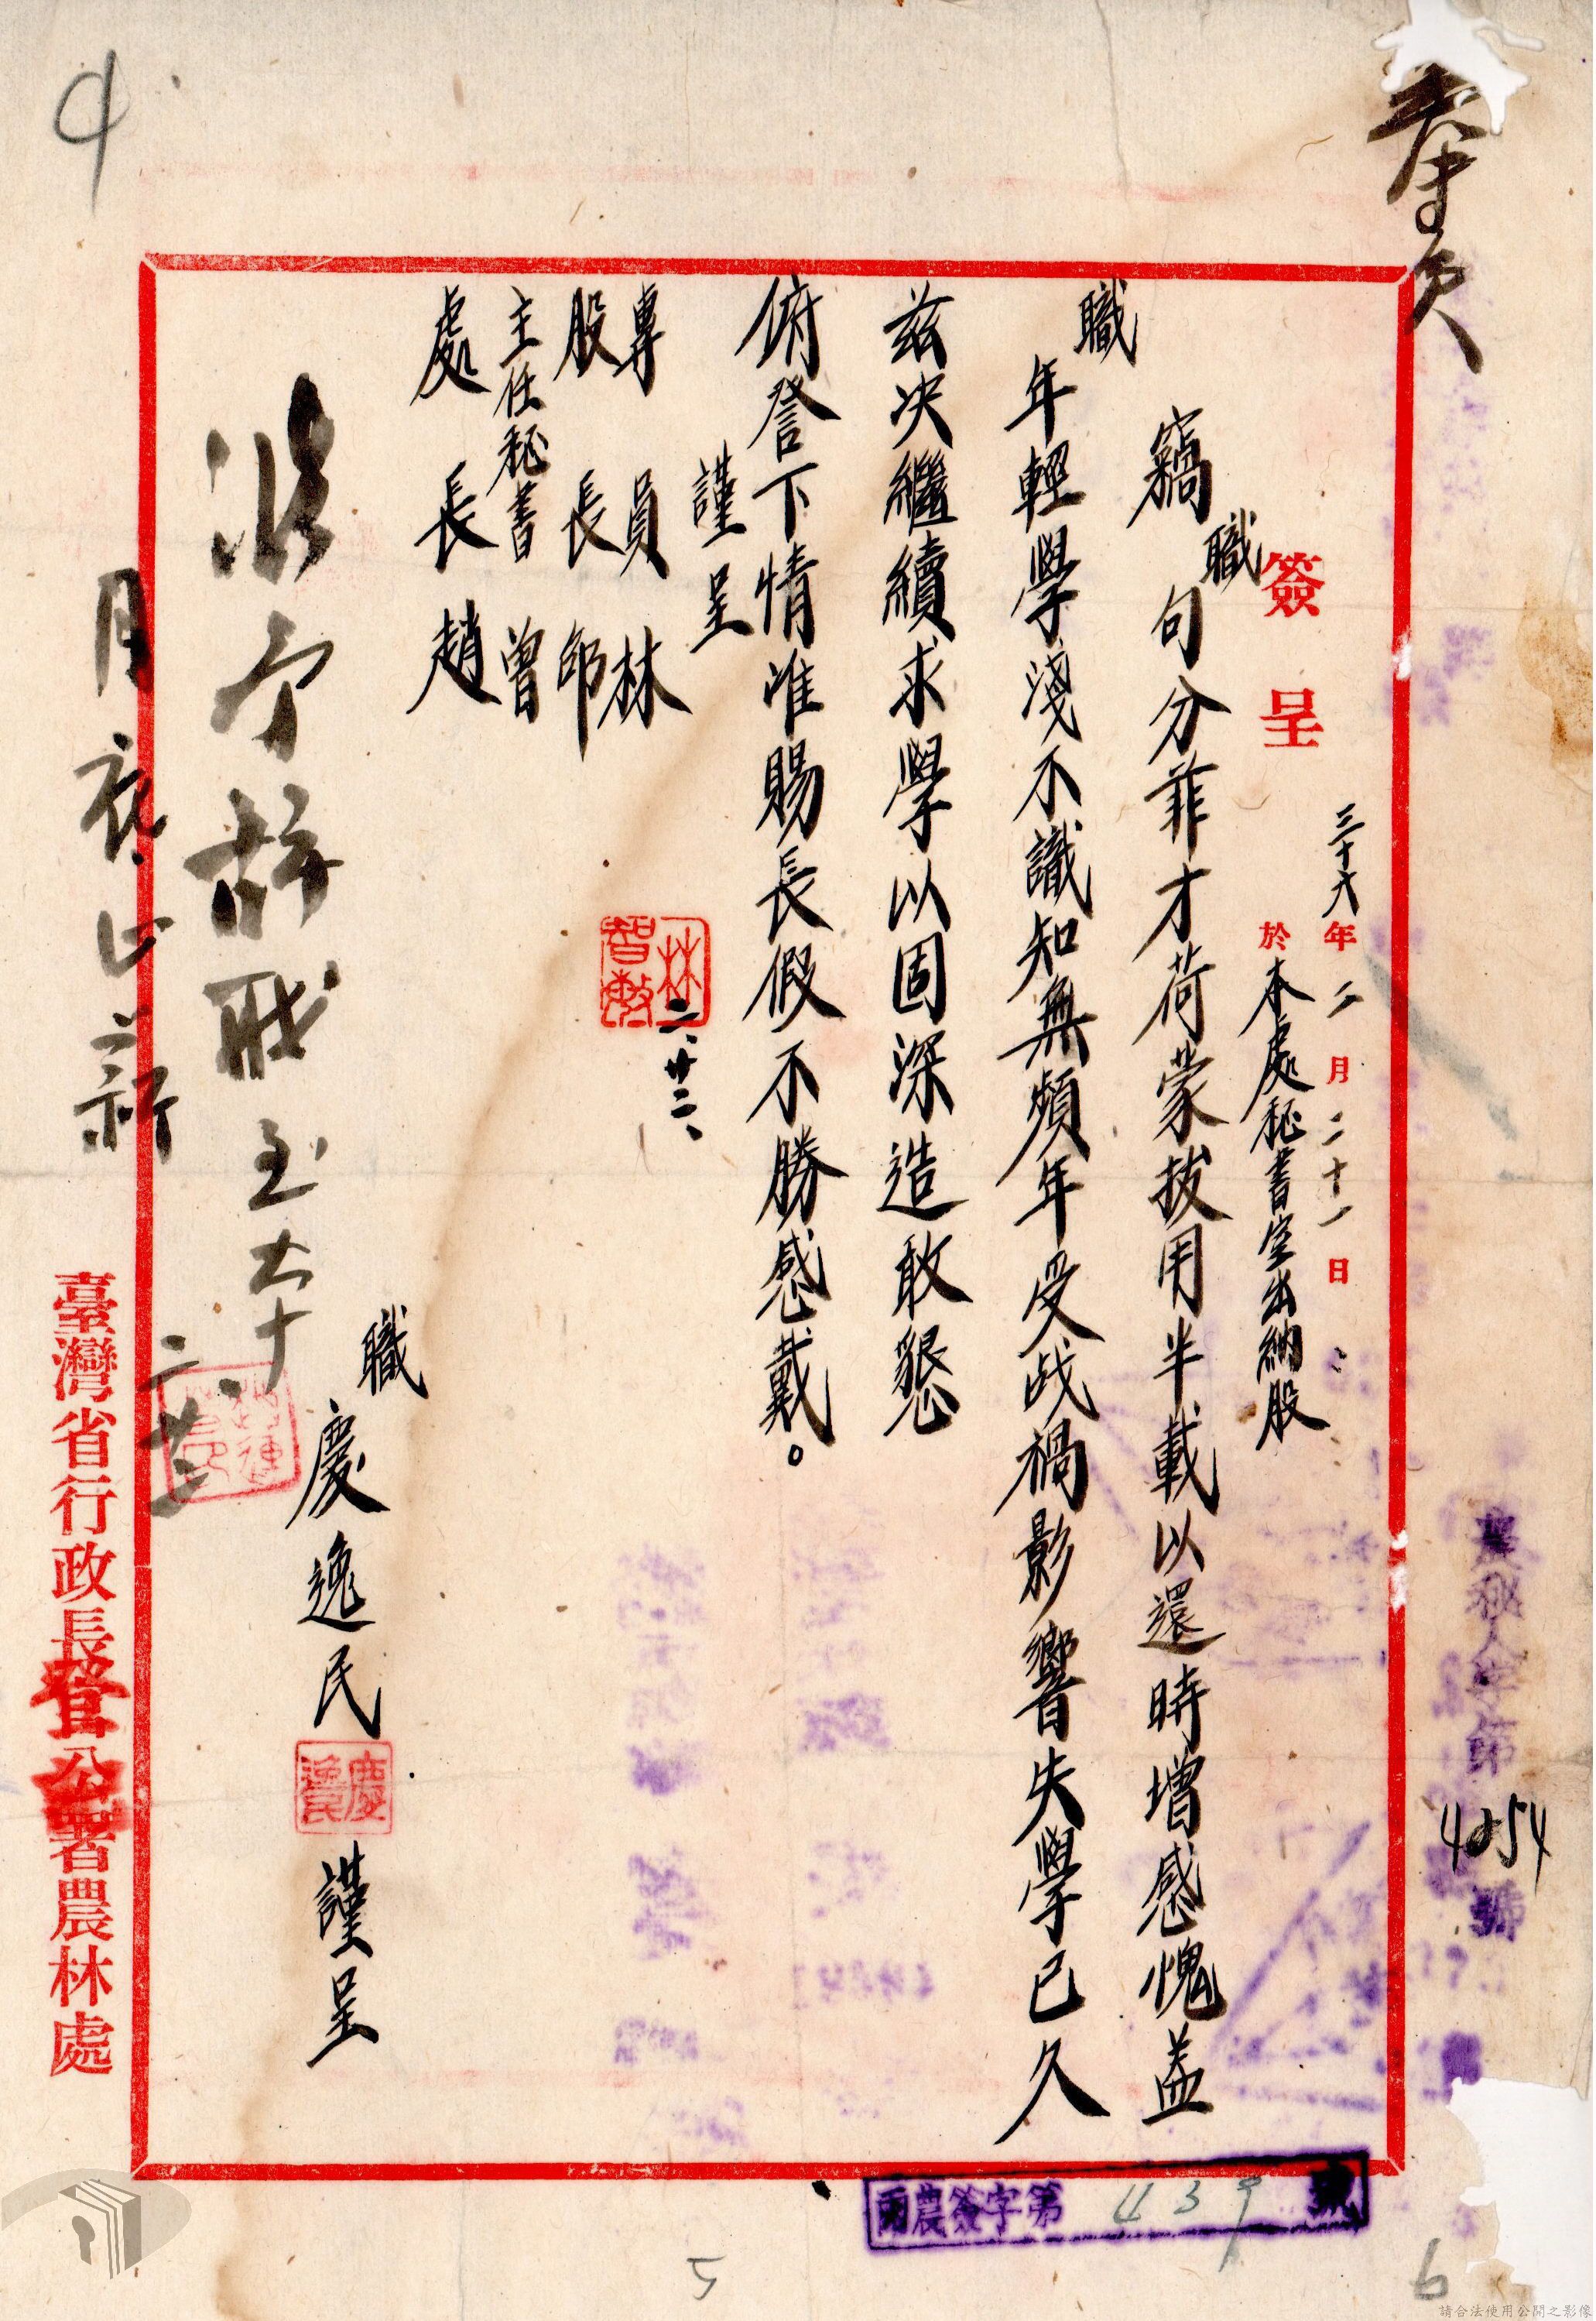 簽呈
三十六年二月二十一日
於本處秘書室出納股
竊職句分菲才荷蒙拔用半載以還時增感愧蓋
職年輕學淺不識知無頻年受战禍影響失學已久
兹决繼續求學以固深造敢懇
俯詧下情准賜長假不勝感戴。
謹呈
專員林
股長邱
主任秘書曾
處長趙
林智敏
二、廿二、
職慶逸民謹呈
慶逸民
准予辭職
月底止薪
臺灣省行政長官公署農林處
農秘人字第4254號
丙農簽字第439號
4
5
6
請合法使用公開之影像